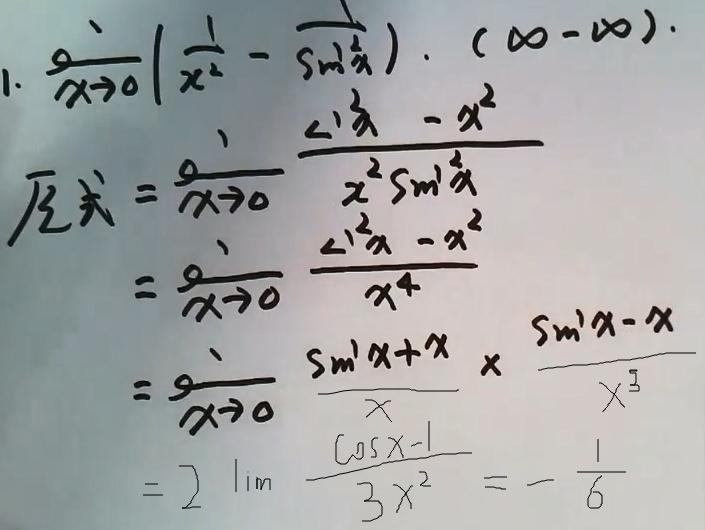 1. lim x→0 (1/x² - 1/sin²x). (∞-∞).
原式 = lim x→0 (sin²x - x²)/(x² sin²x)
= lim x→0 (sin²x - x²)/x⁴
= lim x→0 (sin x + x)/x × (sin x - x)/x³
= 2 lim (cos x - 1)/(3x²) = - 1/6